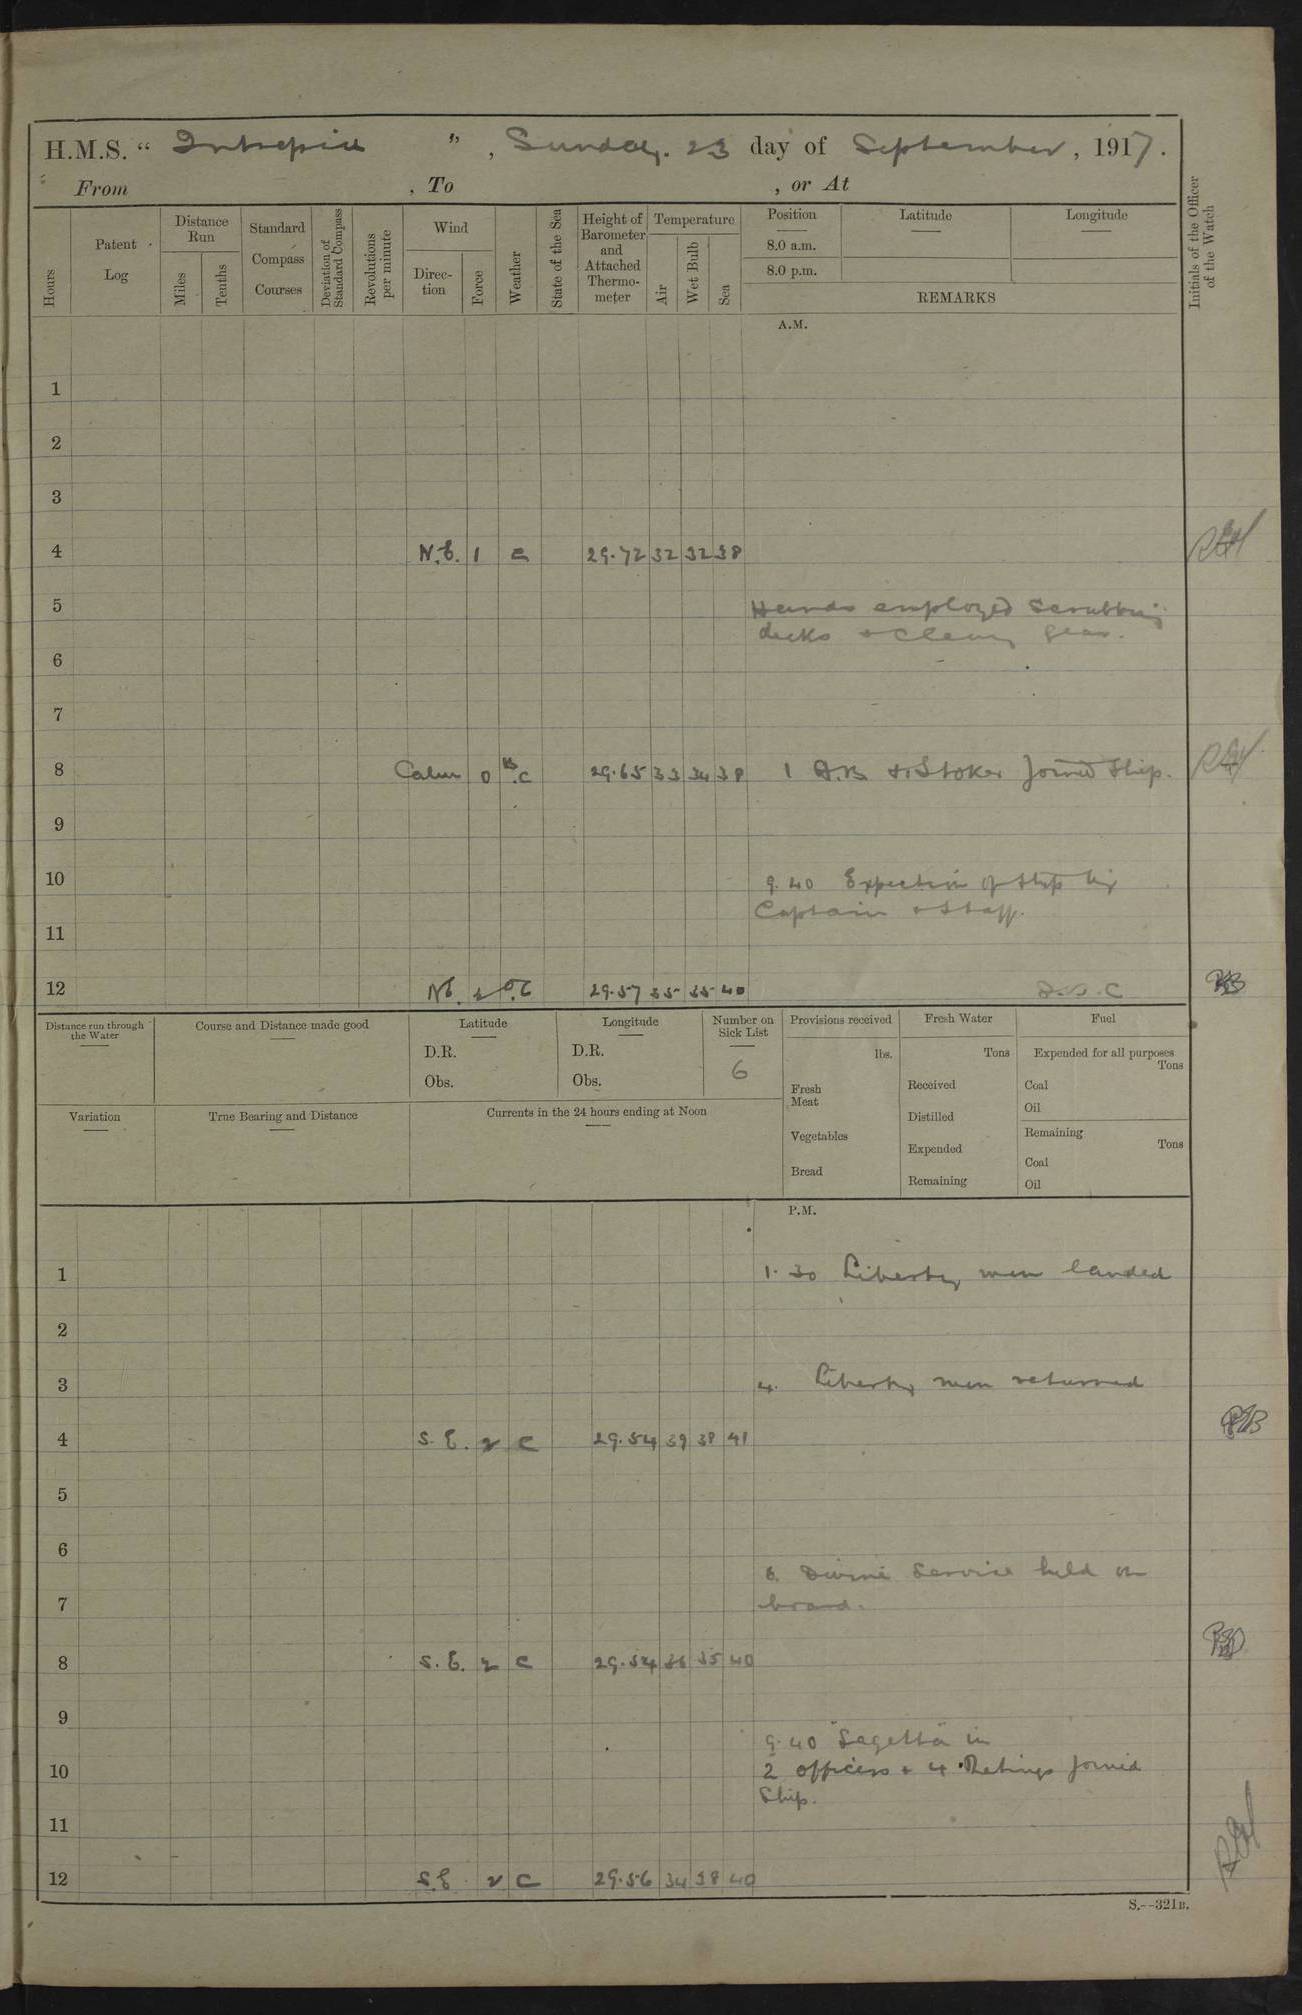 H.M.S. “ Intrepid ”, Sunday. 23 day of September, 1917.
From , To , or At
Hours
Patent Log
Distance Run
Miles
Tenths
Standard Compass Courses
Deviation of Standard Compass
Revolutions per minute
Wind
Direction
Force
Weather
State of the Sea
Height of Barometer and Attached Thermometer
Temperature
Air
Wet Bulb
Sea
Position
8.0 a.m.
8.0 p.m.
Latitude
Longitude
REMARKS
Initials of the Officer of the Watch
A.M.
1
2
3
4 N.E. 1 c 29.72 32 32 38
5 Hands employed scrubbing
decks & cleang gear.
6
7
8 Calm 0 B.C 29.65 33 34 38 1 A.B & 1. Stoker Joined Ship.
9
10 9.40 Expection of ship by
Captain & Staff.
11
12 NE. 2 O.C 29.57 35 35 40
Distance run through the Water
Course and Distance made good
Latitude
D.R.
Obs.
Longitude
D.R.
Obs.
Number on Sick List
6
Provisions received
lbs.
Fresh Meat
Vegetables
Bread
Fresh Water
Tons
Received
Distilled
Expended
Remaining
Fuel
Expended for all purposes
Tons
Coal
Oil
Remaining
Tons
Coal
Oil
Variation
True Bearing and Distance
Currents in the 24 hours ending at Noon
P.M.
1 1.30 Liberty men landed
2
3 4. Liberty men returned
4 S.E. 2 C 29.54 39 38 41
5
6
6. Divine Service held on
7 board.
8 S.E. 2 C 29.54 36 35 40
9
9.40 "Sagetta" in
10 2 officers & 4 Ratings joined
Ship.
11
12 S.E. 2 C 29.56 34 38 40
S.--321B.